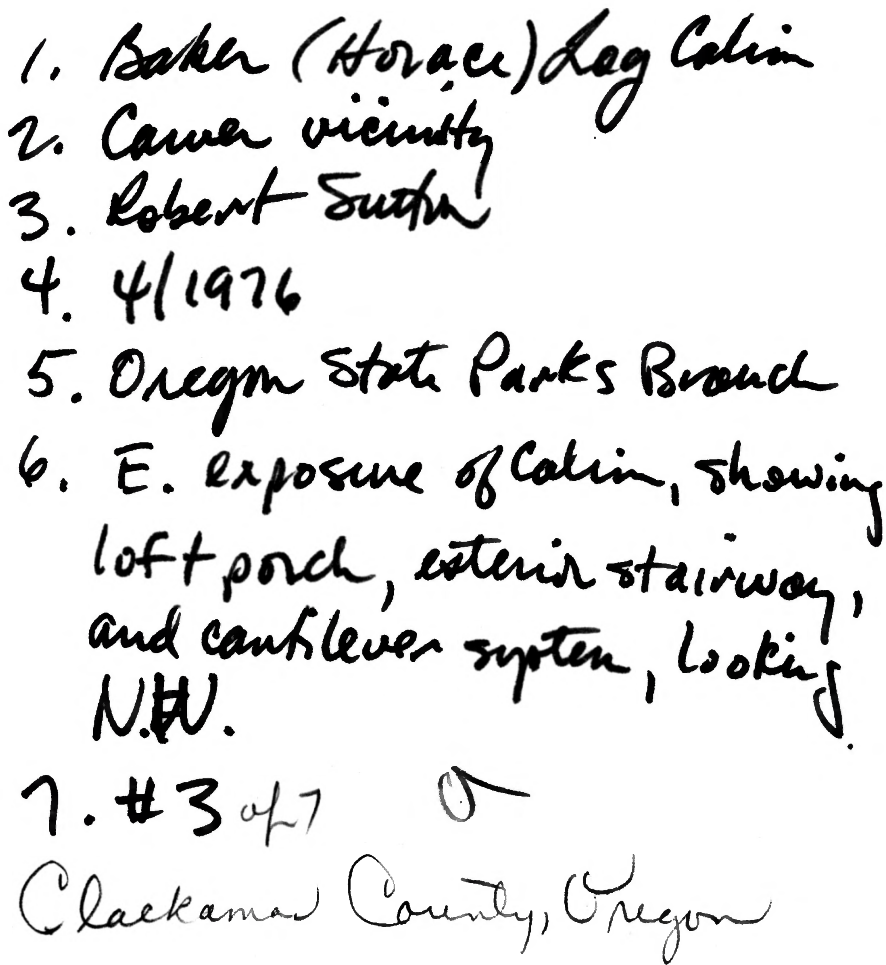 1. Baker (Horace) Log Cabin
2. Carver vicinity
3. Robert Sutton
4. 4/1976
5. Oregon State Parks Branch
6. E. exposure of Cabin, showing
loft porch, exterior stairway,
and cantilever system, looking
N.W.
7. #3 of 7
Clackamas County, Oregon